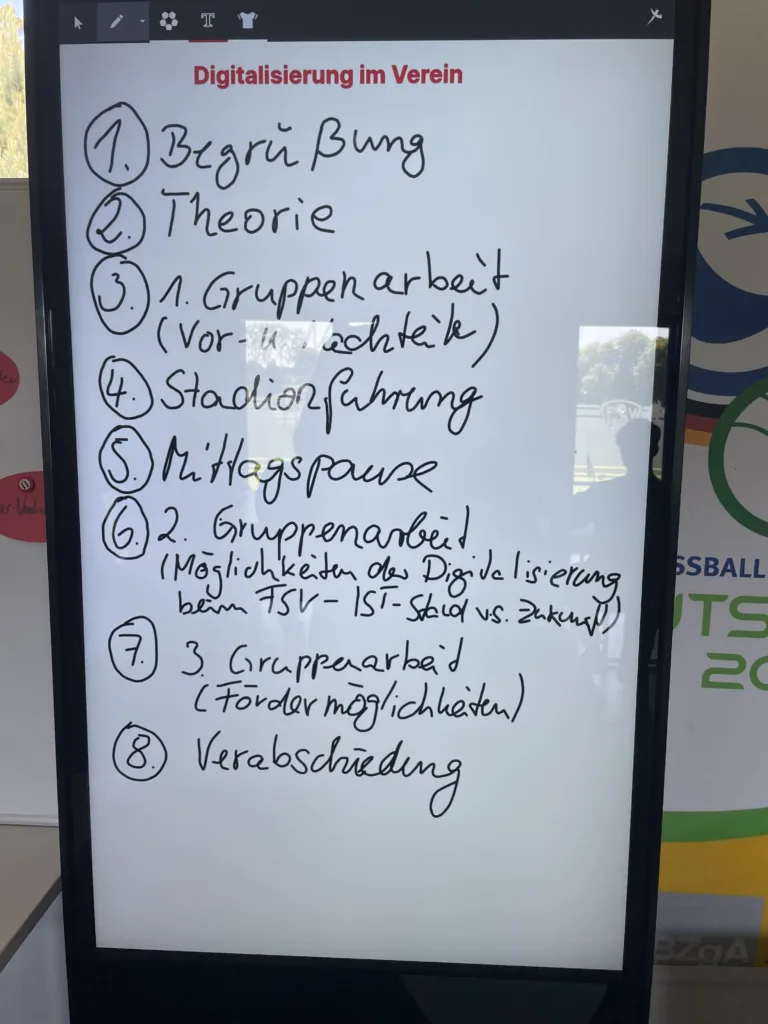 Digitalisierung im Verein
1. Begrüßung
2. Theorie
3. 1. Gruppenarbeit
(Vor- u. Nachteile)
4. Stadionführung
5. Mittagspause
6. 2. Gruppenarbeit
(Möglichkeiten der Digitalisierung
beim FSV - IST-Stand vs. Zukunft)
7. 3. Gruppenarbeit
(Fördermöglichkeiten)
8. Verabschiedung
SSBALL
UTS
20
BZgA